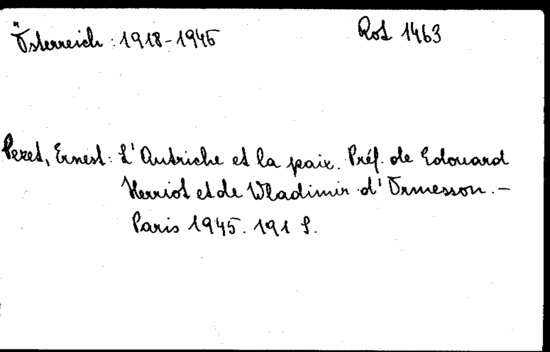 Österreich: 1918-1945 Rot 1463
Pezet, Ernest: L'Autriche et la paix. Préf. de Edouard
Herriot et de Wladimir d'Ormesson. -
Paris 1945. 191 S.